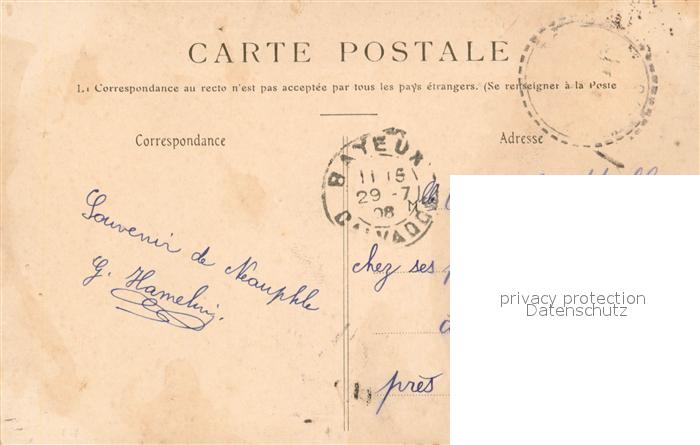 CARTE POSTALE
La Correspondance au recto n'est pas acceptée par tous les pays étrangers. (Se renseigner à la Poste
Correspondance
Adresse
BAYEUX
11 15
29 -7
08
CALVADOS
Souvenir de Neauphle
G. Hamelin.
Mlle
chez ses
à
près
privacy protection
Datenschutz